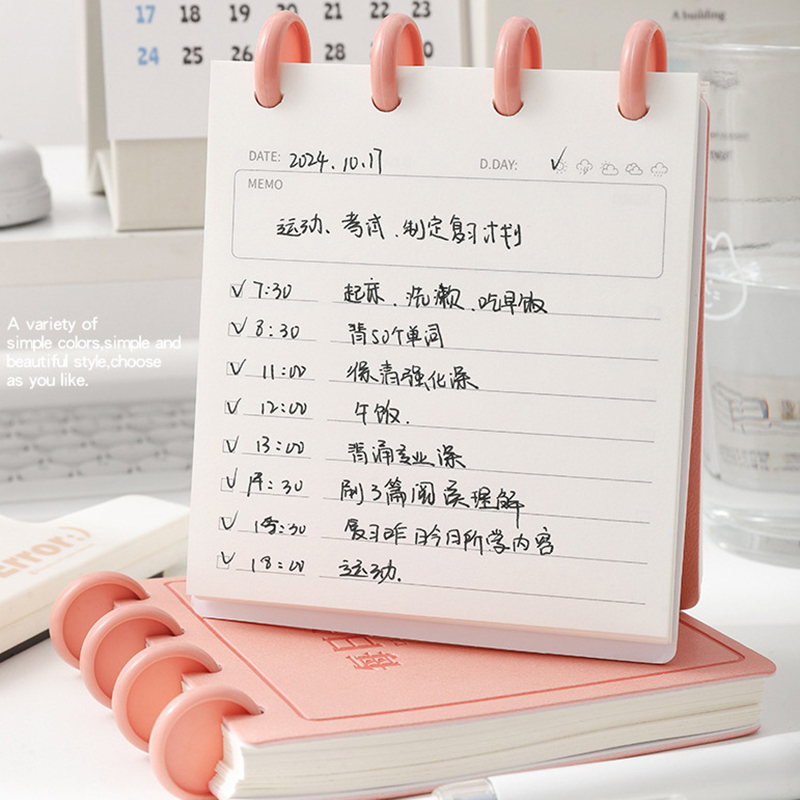 17 18 19 20 21 22 23
24 25 26 28
A building
DATE: 2024.10.17 D.DAY: ✓
MEMO
运动、考试、制定复习计划
✓ 7:30 起床、洗漱、吃早饭
✓ 8:30 背50个单词
✓ 11:00 听强化课
✓ 12:00 午饭.
✓ 13:00 背诵专业课
✓ 14:30 刷3篇阅读理解
✓ 15:30 复习昨日今日所学内容
✓ 18:00 运动.
A variety of
simple colors,simple and
beautiful style,choose
as you like.
Error:)